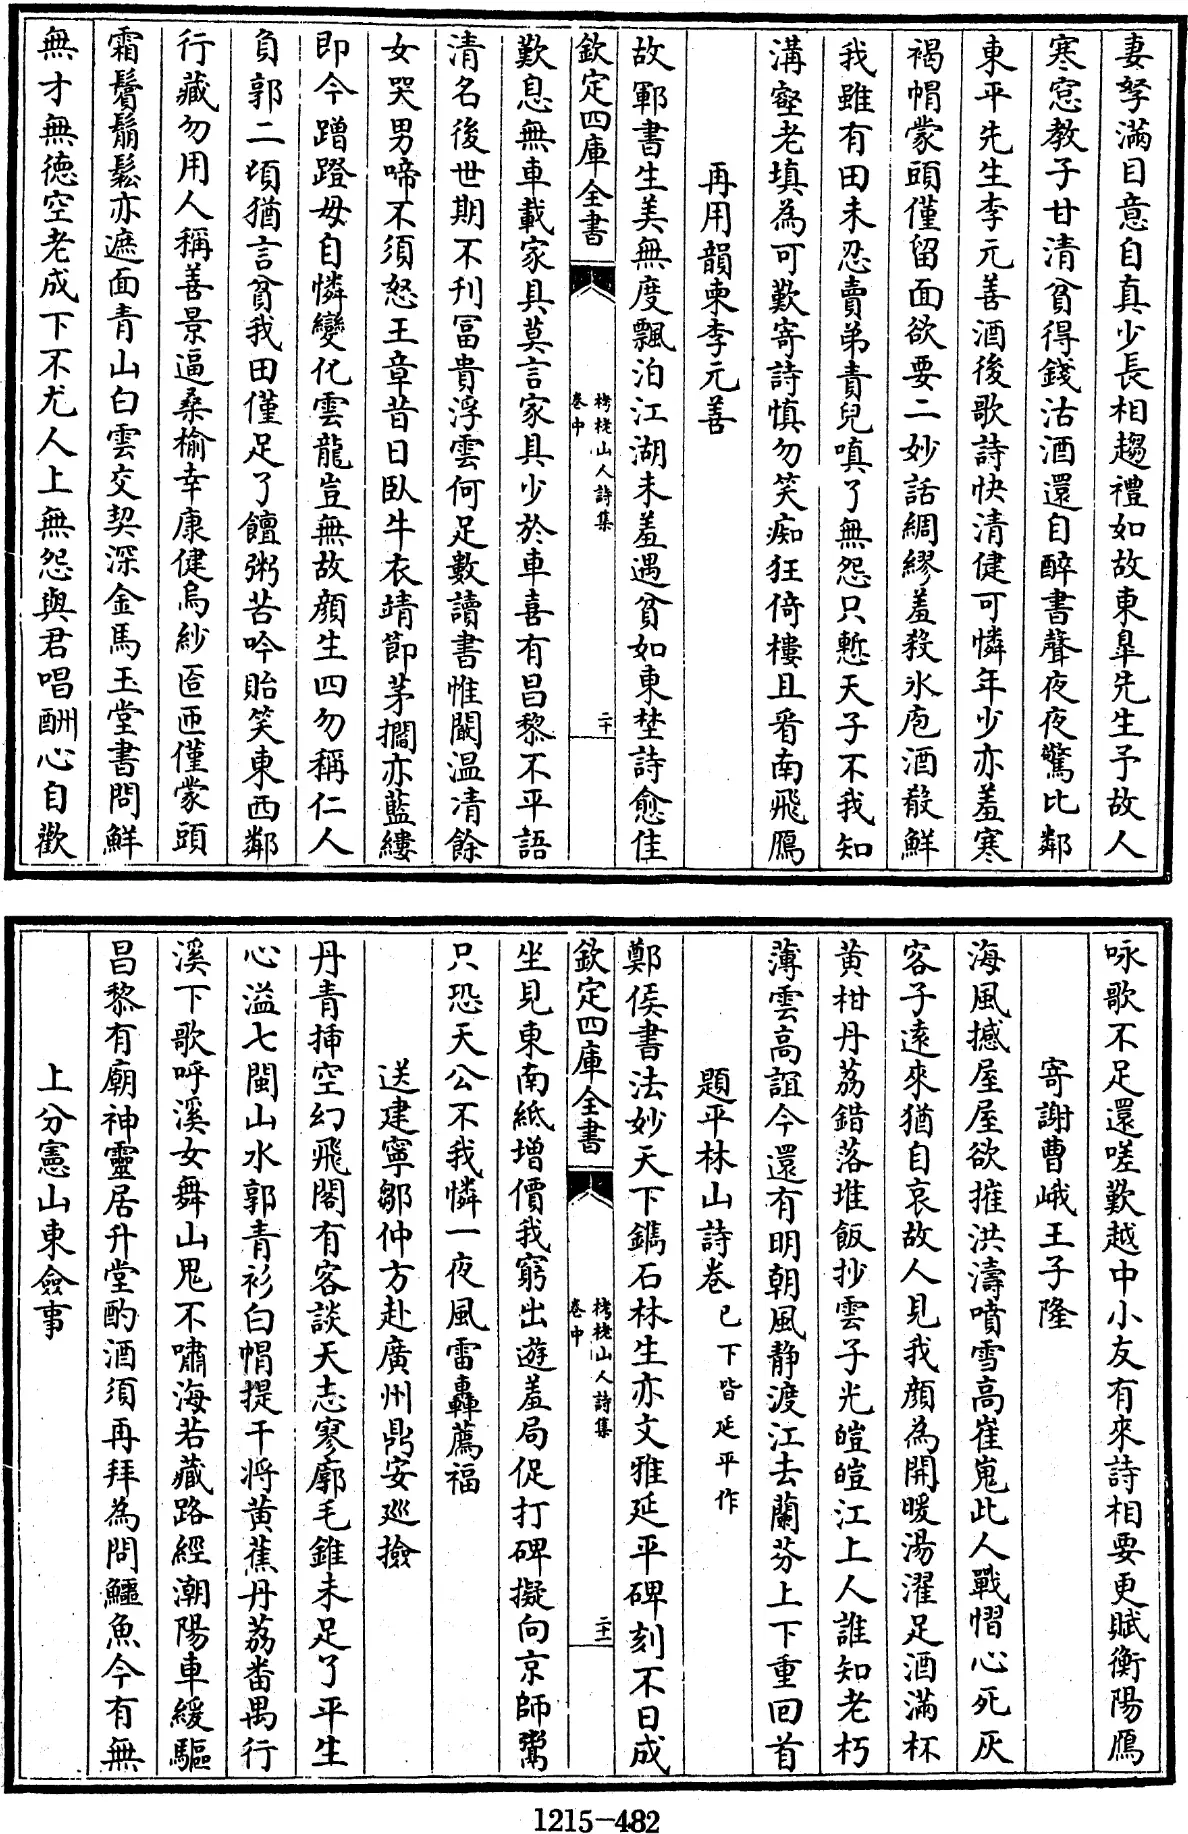 妻孥滿目意自真少長相趨禮如故東臯先生予故人
寒窓教子甘清貧得錢沽酒還自醉書聲夜夜驚比鄰
東平先生李元善酒後歌詩快清健可憐年少亦羞寒
褐帽蒙頭僅留面欲要二妙話綢繆羞殺氷庖酒殽鮮
我雖有田未忍賣弟責兒嗔了無怨只慙天子不我知
溝壑老填為可歎寄詩慎勿笑痴狂倚樓且看南飛鴈
再用韻柬李元善
故鄆書生美無度飄泊江湖未羞遇貧如東埜詩愈佳
欽定四庫全書
栲栳山人詩集
卷中
二十
歎息無車載家具莫言家具少於車喜有昌黎不平語
清名後世期不刊冨貴浮雲何足數讀書惟闕温凊餘
女哭男啼不須怒王章昔日臥牛衣靖節茅擱亦藍縷
即今蹭蹬毋自憐變化雲龍豈無故顔生四勿稱仁人
負郭二頃猶言貧我田僅足了饘粥苦吟貽笑東西鄰
行藏勿用人稱善景逼桑榆幸康健烏紗匼匝僅蒙頭
霜鬢鬅鬆亦遮面青山白雲交契深金馬玉堂書問鮮
無才無德空老成下不尤人上無怨與君唱酬心自歡
咏歌不足還嗟歎越中小友有來詩相要更賦衡陽鴈
寄謝曹峨王子隆
海風撼屋屋欲摧洪濤噴雪高崔嵬此人戰慴心死灰
客子遠來猶自哀故人見我顔為開暖湯濯足酒滿杯
黄柑丹荔錯落堆飯抄雲子光皚皚江上人誰知老朽
薄雲高誼今還有明朝風静渡江去蘭芬上下重回首
題平林山詩卷已下皆延平作
鄭侯書法妙天下鐫石林生亦文雅延平碑刻不日成
欽定四庫全書
栲栳山人詩集
卷中
二十一
坐見東南紙增價我窮出遊羞局促打碑擬向京師鬻
只恐天公不我憐一夜風雷轟薦福
送建寧鄒仲方赴廣州鼎安廵撿
丹青插空幻飛閣有客談天志寥廓毛錐未足了平生
心溢七閩山水郭青衫白帽提干將黄蕉丹荔畨禺行
溪下歌呼溪女舞山鬼不嘯海若藏路經潮陽車緩驅
昌黎有廟神靈居升堂酌酒須再拜為問鱷魚今有無
上分憲山東僉事
1215-482